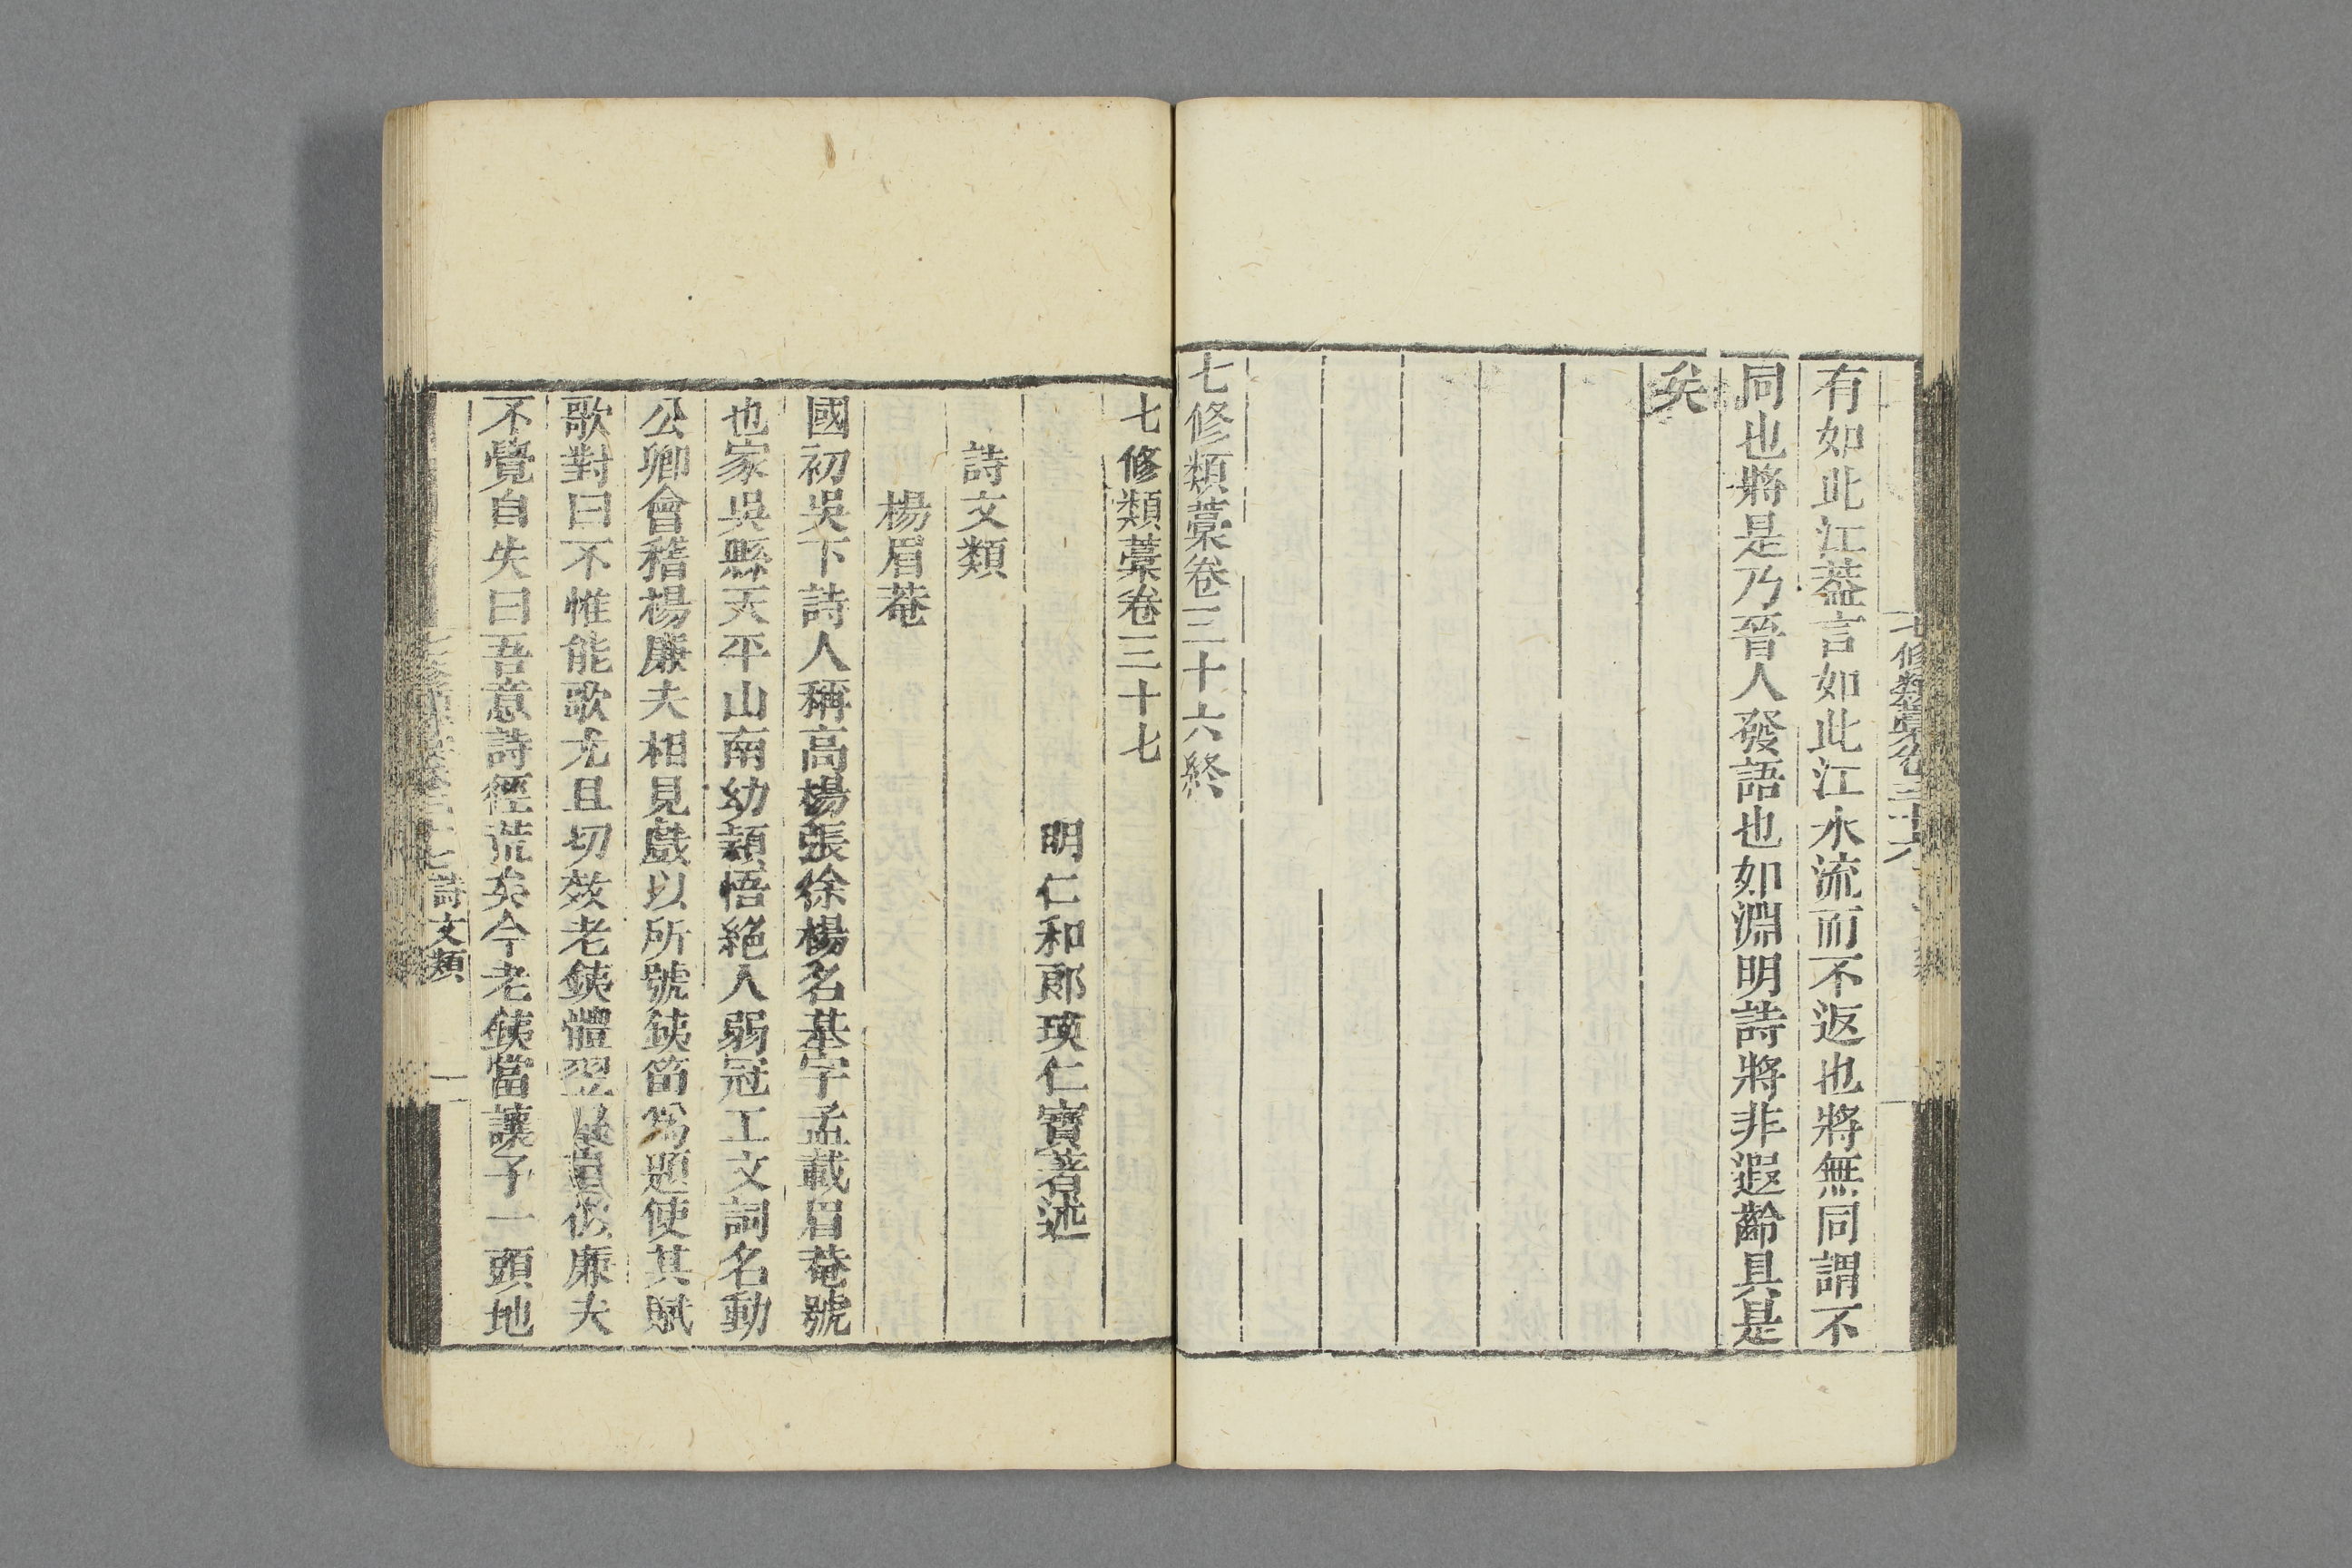 七修類藁卷三十六
有如此江葢言如此江水流而不返也將無同謂不
同也將是乃晉人發語也如淵明詩將非遐齡具是
矣
七修類藁卷三十六終
七修類藁卷三十七
明仁和郎瑛仁寶著述
詩文類
楊眉菴
國初吳下詩人稱高楊張徐楊名基字孟載眉菴號
也家吳縣天平山南幼穎悟絕人弱冠工文詞名動
公卿會稽楊廉夫相見戲以所號鉄笛為題使其賦
歌對曰不惟能歌尤且切效老鉄體翌廉夫
不覺自失曰吾意詩徑荒矣今老鉄當讓子一頭地
詩文類
一